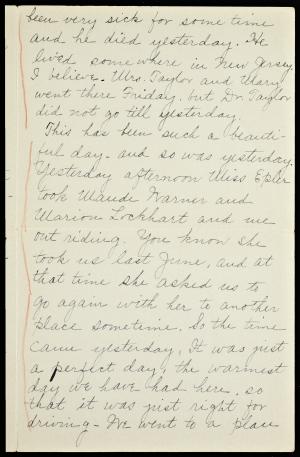 been very sick for some time
and he died yesterday. He
lived somewhere in New Jersey
I believe. Mrs. Taylor and Mary
went there Friday, but Dr. Taylor
did not go till yesterday.
This has been such a beauti-
ful day - and so was yesterday.
Yesterday afternoon Miss Epler
took Maude Warner and
Marion Lockhart and me
out riding. You know she
took us last June, and at
that time she asked us to
go again with her to another
place sometime. So the time
came yesterday. It was just
a perfect day, the warmest
day we have had here, so
that it was just right for
driving - We went to a place